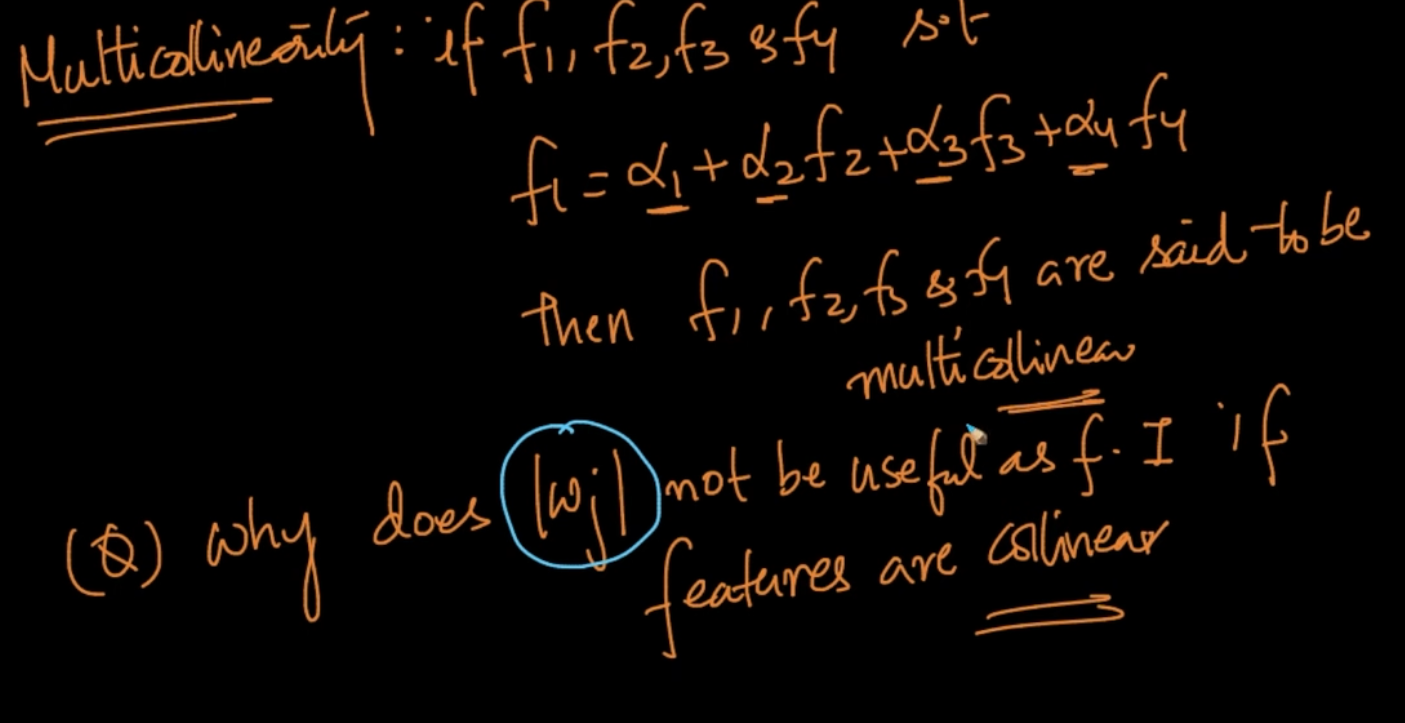 Multicollinearity : if f1, f2, f3 & f4 s.t
f1 = α1 + α2 f2 + α3 f3 + α4 f4
then f1, f2, f3 & f4 are said to be
multicollinear
(Q) why does |wj| not be useful as f.I if
features are collinear